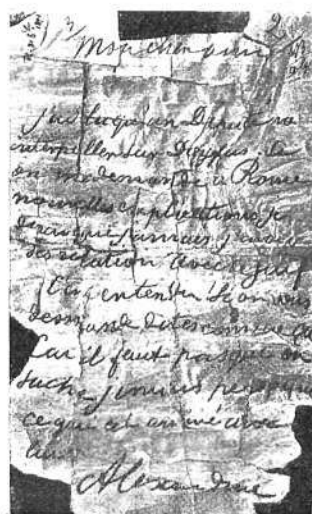 Mon cher ami
J'ai lu qu'un Député va
interpeller sur Dreyfus. Si
on me demande à Rome
nouvelles explications, je
dirai que jamais j'avais
des relation avec ce Juif
C'est entendu. Si on vous
demande dites comme ça
Car il faut pas que on
sache jamais personne
ce qui est arrivé avec
lui
Alexandrine